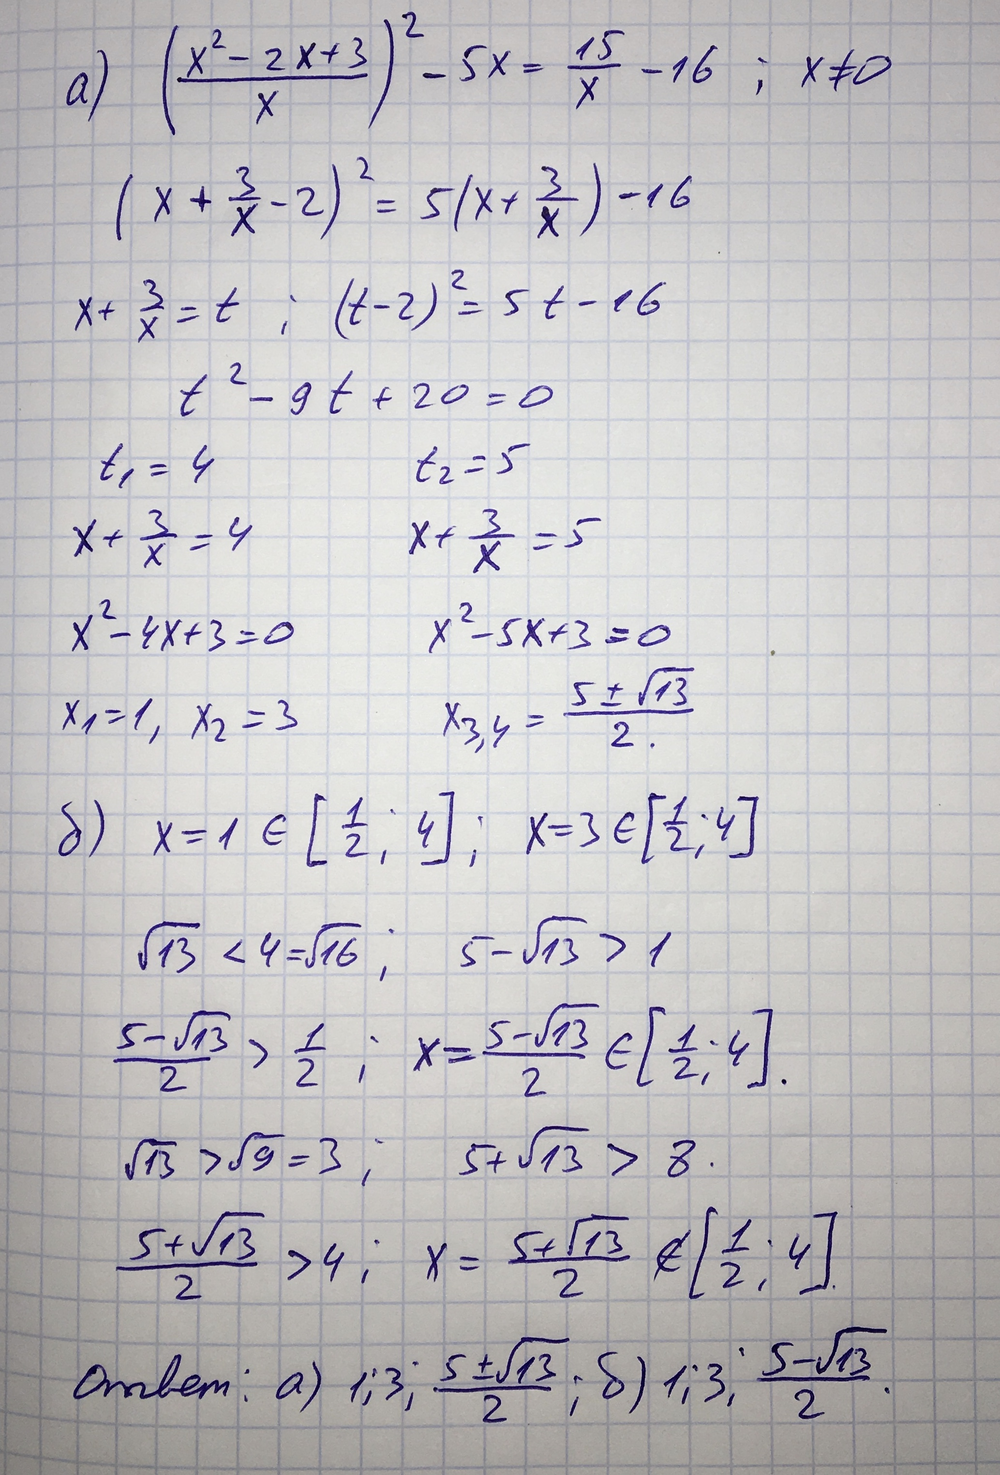 а) ((x² - 2x + 3)/x)² - 5x = 15/x - 16 ; x ≠ 0
(x + 3/x - 2)² = 5(x + 3/x) - 16
x + 3/x = t ; (t - 2)² = 5t - 16
t² - 9t + 20 = 0
t₁ = 4 t₂ = 5
x + 3/x = 4 x + 3/x = 5
x² - 4x + 3 = 0 x² - 5x + 3 = 0
x₁ = 1, x₂ = 3 x₃,₄ = (5 ± √13)/2.
б) x = 1 ∈ [1/2; 4]; x = 3 ∈ [1/2; 4]
√13 < 4 = √16; 5 - √13 > 1
(5 - √13)/2 > 1/2; x = (5 - √13)/2 ∈ [1/2; 4].
√13 > √9 = 3; 5 + √13 > 8.
(5 + √13)/2 > 4; x = (5 + √13)/2 ∉ [1/2; 4].
Ответ: а) 1; 3; (5 ± √13)/2; б) 1; 3; (5 - √13)/2.